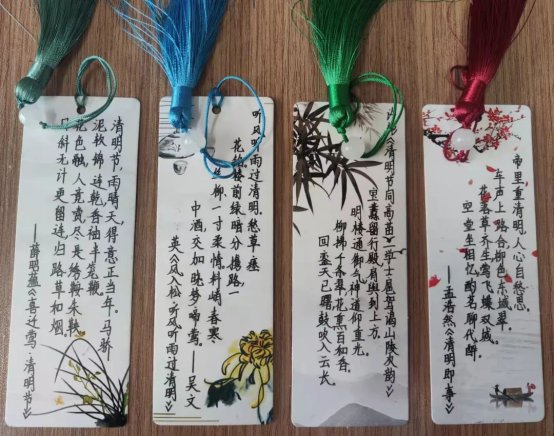 清明节,雨晴天,得意正当年。马骄
泥软锦连乾,香袖半笼鞭
花色融,人竟赏,尽是绣鞍朱鞅
日斜无计更留连,归路草和烟。
——薛昭蕴《喜迁莺·清明节》
听风听雨过清明。愁草瘗
花铭。楼前绿暗分携路,一
丝柳,一寸柔情。料峭春寒
中酒,交加晓梦啼莺。——吴文
英《风入松·听风听雨过清明》
《清明节同高苗二学士展驾谒山陵
留行殿,肩舆到上方。
明楼通御气,神道仰重光。
柳拂千条翠,花熏百和香。
回看天已曙,鼓吹入云长。
帝里重清明,人心自愁思。
车声上路合,柳色东城翠。
花落草齐生,莺飞蝶双戏。
空堂坐相忆,酌茗聊代醉。
——孟浩然《清明即事》